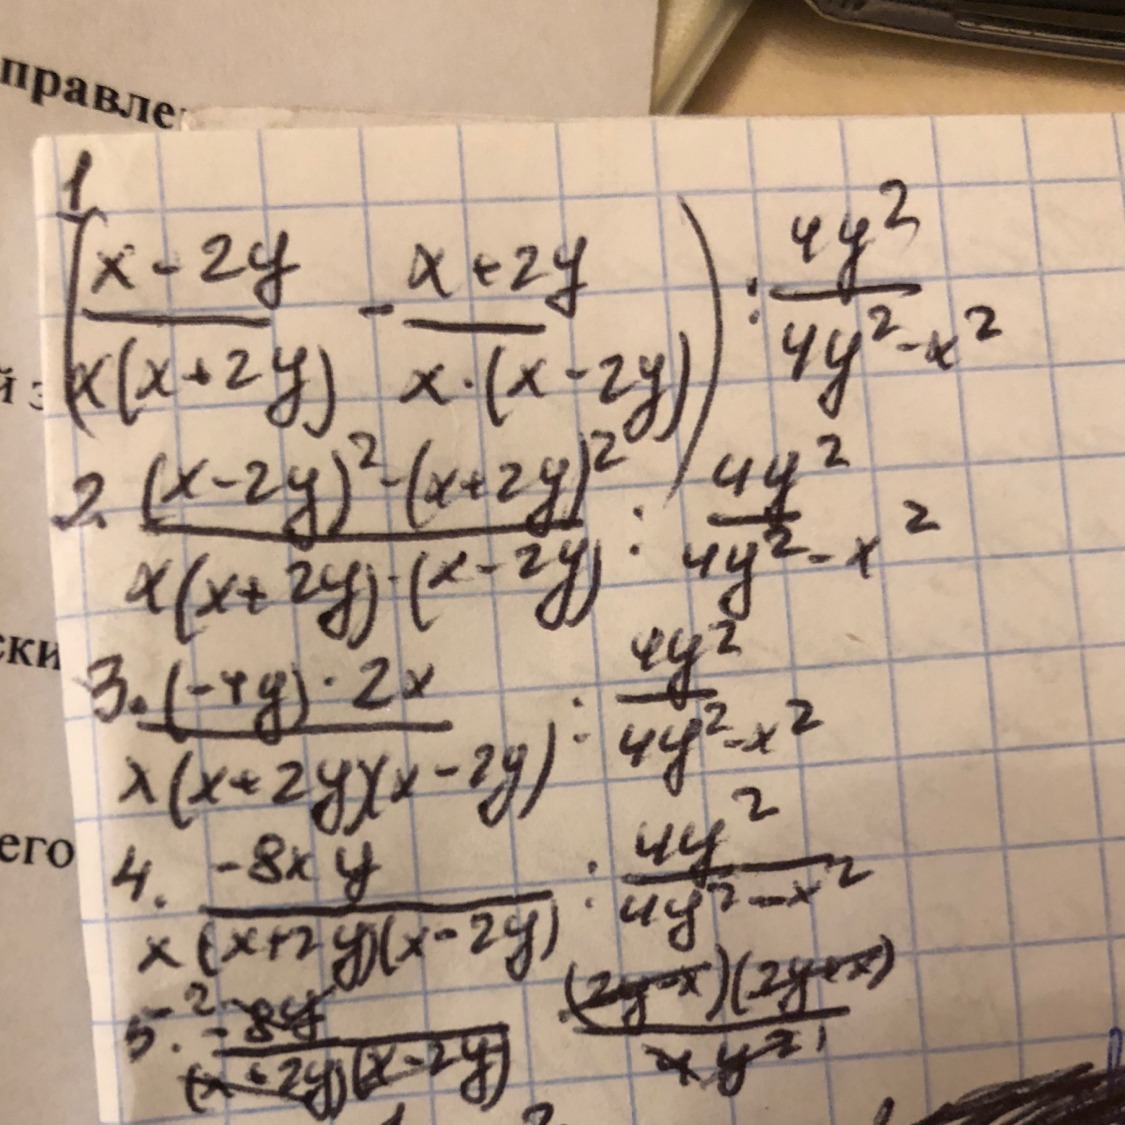 правле
1
(x - 2y / x(x + 2y) - x + 2y / x·(x - 2y)) : 4y² / 4y² - x²
й з
2. (x - 2y)² - (x + 2y)² / x(x + 2y)·(x - 2y) : 4y² / 4y² - x²
ски
3. (-4y) · 2x / x(x + 2y)(x - 2y) : 4y² / 4y² - x²
его
4. -8xy / x(x+2y)(x - 2y) : 4y² / 4y² - x²
5. ² -8y / (x + 2y)(x - 2y) · (2y - x)(2y + x) / 4y² 1